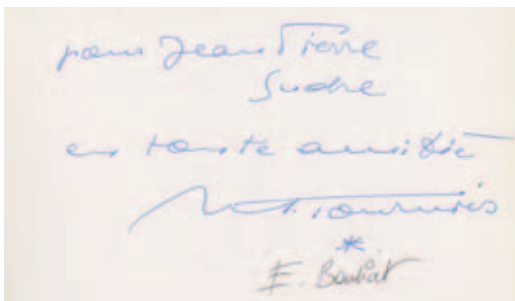 pour Jean Pierre
Sudre
en toute amitié
*
E. Boubat